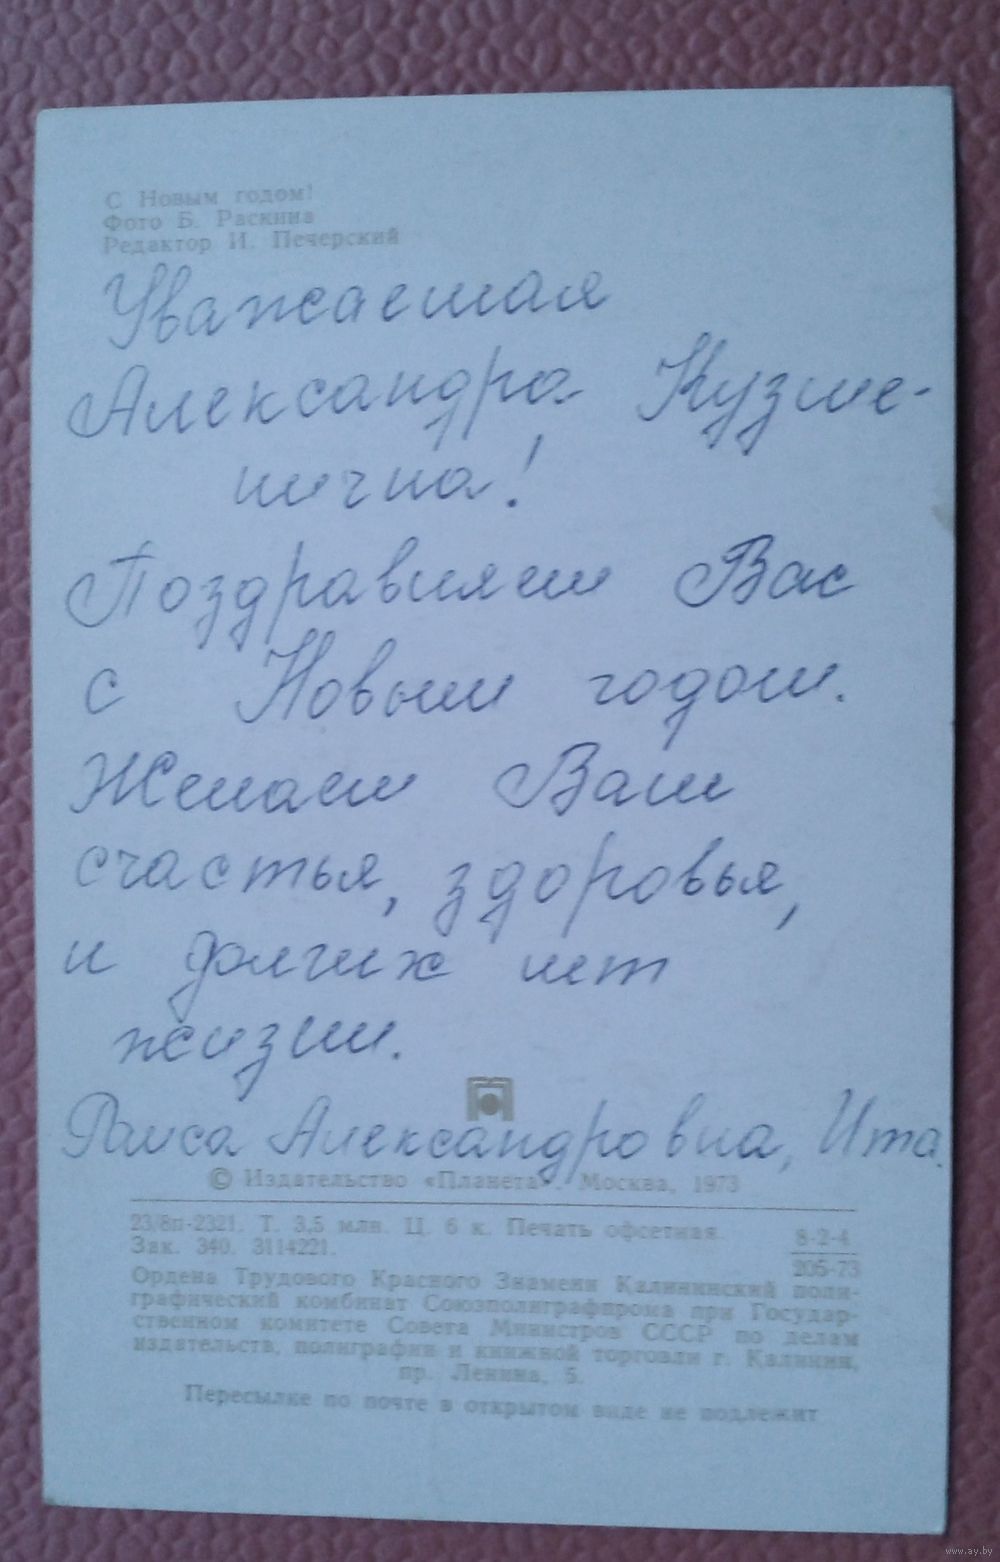 С Новым годом!
Фото Б. Раскина
Редактор И. Печерский
Уважаемая
Александра Кузме-
нична!
Поздравляем Вас
с Новым годом.
Желаем Вам
счастья, здоровья,
и долгих лет
жизни.
Раиса Александровна, Ита.
© Издательство «Планета». Москва, 1973
23/8п-2321. Т. 3,5 млн. Ц. 6 к. Печать офсетная.
Зак. 340. 3114221.
8-2-4
205-73
Ордена Трудового Красного Знамени Калининский поли-
графический комбинат Союзполиграфпрома при Государ-
ственном комитете Совета Министров СССР по делам
издательств, полиграфии и книжной торговли г. Калинин,
пр. Ленина, 5.
Пересылке по почте в открытом виде не подлежит
www.ay.by